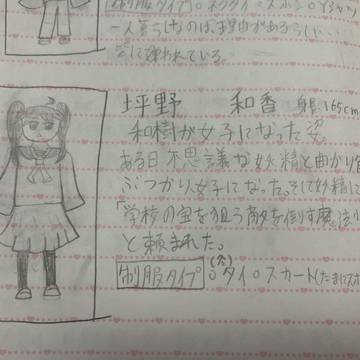 制服タイプ○ネクタイ○ズボン○Yシャツ
一人暮らしなのは、理由があるらしい…
に嫌われている。
坪野 和香 身長165cm
和樹が女子になった姿
ある日不思議な妖精と曲がり角
ぶつかり、女子になった。そして妖精に
「学校の宝を狙う敵を倒す魔法
と頼まれた。
制服タイプ ○タイ○スカート(たまにズボ